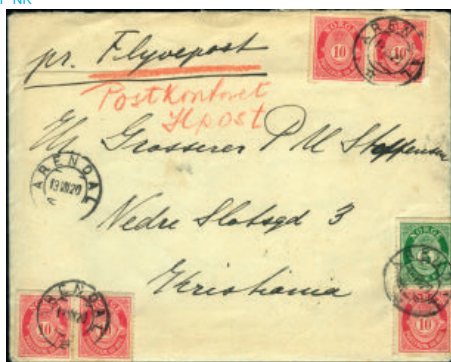 pr. Flyvepost
Postkontoret
Ilpost
Hr Grosserer P M Steffensen
Nedre Slotsgd 3
Kristiania
ARENDAL
19 VIII 20
ARENDAL
NORGE
10
10
10
10